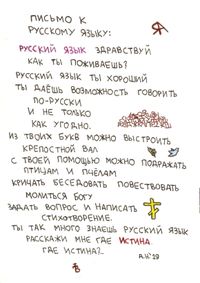 ПИСЬМО К
РУССКОМУ ЯЗЫКУ:
РУССКИЙ ЯЗЫК ЗДРАВСТВУЙ
КАК ТЫ ПОЖИВАЕШЬ?
РУССКИЙ ЯЗЫК ТЫ ХОРОШИЙ
ТЫ ДАЁШЬ ВОЗМОЖНОСТЬ ГОВОРИТЬ
ПО-РУССКИ
И НЕ ТОЛЬКО
КАК УГОДНО.
ИЗ ТВОИХ БУКВ МОЖНО ВЫСТРОИТЬ
КРЕПОСТНОЙ ВАЛ
С ТВОЕЙ ПОМОЩЬЮ МОЖНО ПОДРАЖАТЬ
ПТИЦАМ И ПЧЁЛАМ
КРИЧАТЬ БЕСЕДОВАТЬ ПОВЕСТВОВАТЬ
МОЛИТЬСЯ БОГУ
ЗАДАТЬ ВОПРОС И НАПИСАТЬ
СТИХОТВОРЕНИЕ.
ТЫ ТАК МНОГО ЗНАЕШЬ РУССКИЙ ЯЗЫК
РАССКАЖИ МНЕ ГДЕ ИСТИНА
ГДЕ ИСТИНА?..